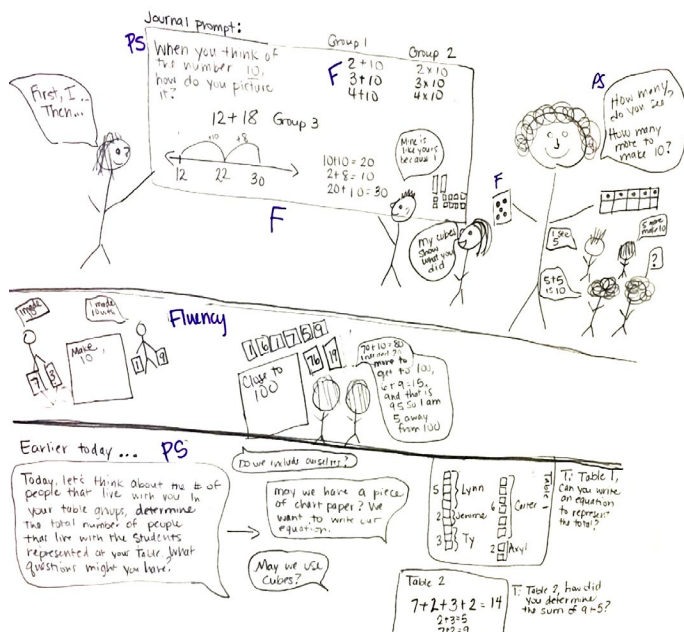 Journal prompt:
PS
When you think of
the number 10,
how do you picture
it?
Group 1
F
2+10
3+10
4+10
Group 2
2x10
3x10
4x10
First, I...
Then...
12+18 Group 3
+10
+8
12 22 30
10+10=20
2+8=10
20+10=30
F
Mine is
like yours
because I
My cubes
show
what you
did
F
PS
How many
do you see
How many
more to
make 10?
I see
5
5 more
make 10
5+5
is 10
?
Fluency
I made
I made
10 with
Make
10
7 3
1 9
1 6 1 7 5 9
76 19
Close to
100
70+10=80
more to
get to 100,
6+9=15,
and that is
95 so I am
5 away
from 100
Earlier today... PS
Today, let's think about the # of
people that live with you. In
your table groups, determine
the total number of people
that live with the students
represented at your table. What
questions might you have?
Do we include ourselves?
May we have a piece
of chart paper? We
want to write our
equation.
May we use
cubes?
Table 1
5 Lynn
2 Jerome
3 Ty
6 Carter
2 Axyl
T: Table 1,
Can you write
an equation
to represent
the total?
Table 2
7+2+3+2=14
2+3=5
7+2=9
T: Table 2, how did
you determine
the sum of 9+5?